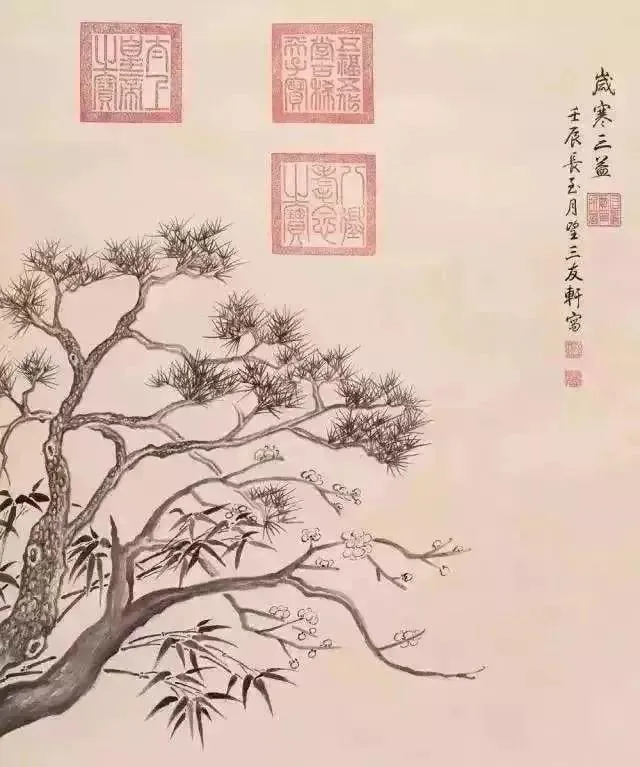 嵗寒三益
壬辰長至月望三友軒寫
五福五代堂古稀天子寶
八徵耄念之寶
太上皇帝之寶